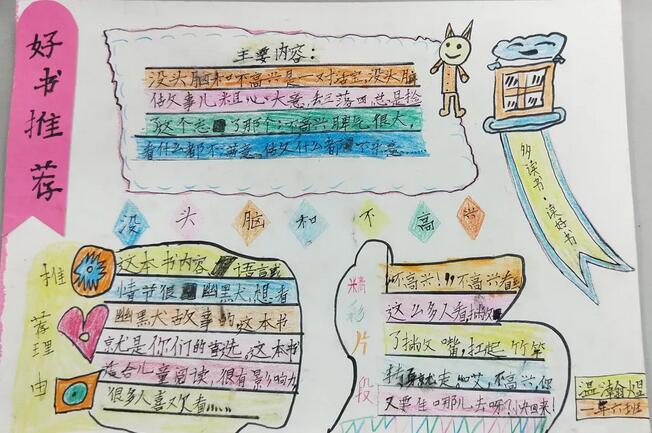 好书推荐
主要内容：
没头脑和不高兴是一对活宝,没头脑
做事儿粗心大意,丢三落四总是捡
了这个忘了那个;不高兴脾气很大,
看什么都不满意,做什么都不乐意……
多读书·读好书
没头脑和不高兴
推荐理由
这本书内容 语言
情节很 幽黑犬,想看
幽黑犬故事的这本书
就是你们的首选,这本书
适合儿童阅读,很有影响力
很多人喜欢看……
精彩片段
"不高兴!"不高兴看
这么多人看
了 嘴,扛起竹竿
走,哎,不高兴,你
又要往哪儿去呀?快回来!
温瀚
二年六班